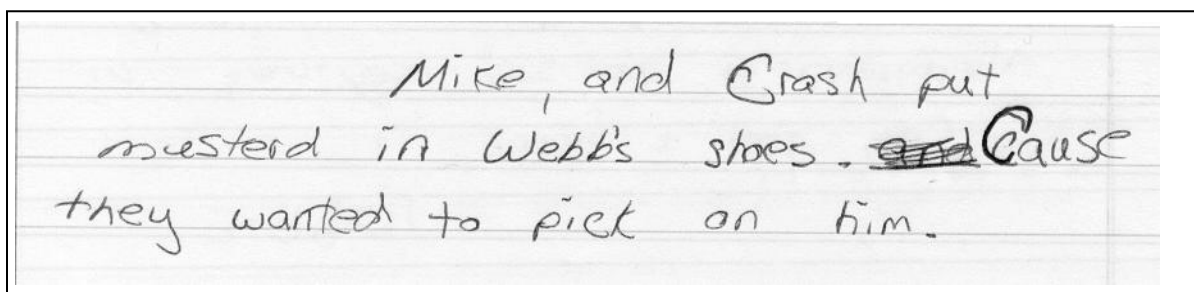 Mike, and Crash put
musterd in Webb's shoes. Cause
they wanted to pick on him.